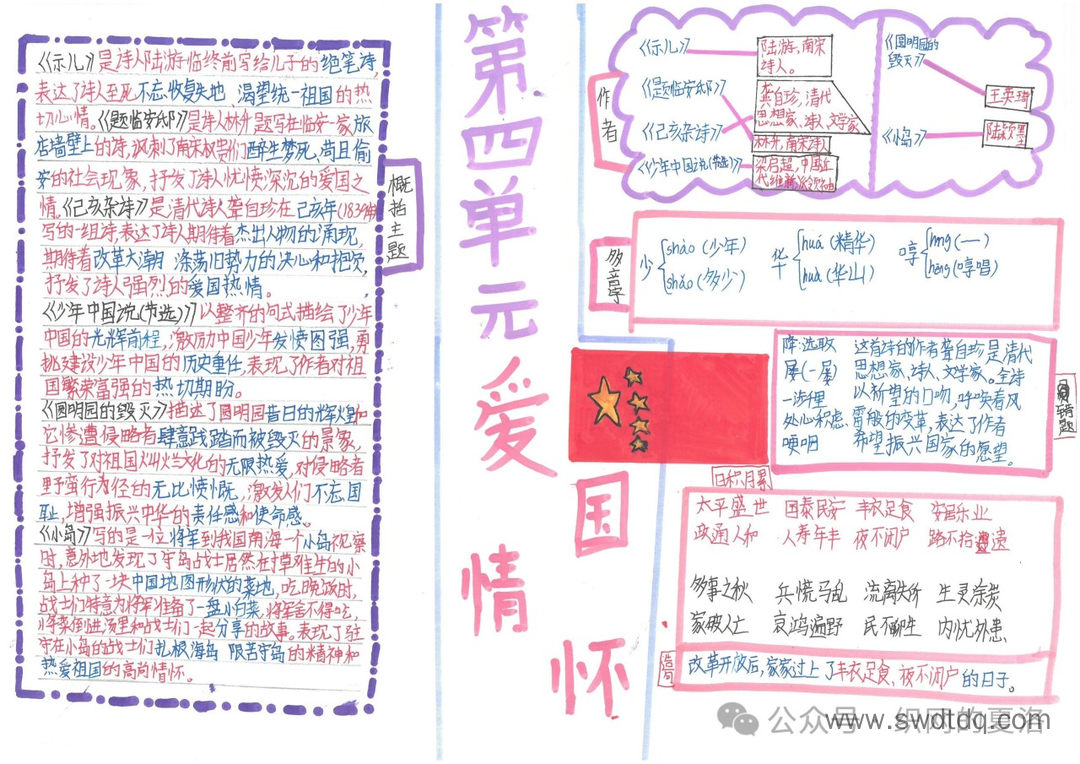 《示儿》是诗人陆游临终前写给儿子的绝笔诗,
表达了诗人至死不忘收复失地、渴望统一祖国的热
切心情。《题临安邸》是诗人林升题写在临安一家旅
店墙壁上的诗,讽刺了南宋权贵们醉生梦死、苟且偷
安的社会现象,抒发了诗人忧愤深沉的爱国之
情。《己亥杂诗》是清代诗人龚自珍在己亥年(1839年)
写的一组诗,表达了诗人期待着杰出人物的涌现,
期待着改革大潮 涤荡旧势力的决心和抱负,
抒发了诗人强烈的爱国热情。
《少年中国说(节选)》以整齐的句式描绘了少年
中国的光辉前程,激励中国少年发愤图强,勇
挑建设少年中国的历史重任,表现了作者对祖
国繁荣富强的热切期盼。
《圆明园的毁灭》描述了圆明园昔日的辉煌和
它惨遭侵略者肆意践踏而被毁灭的景象,
抒发了对祖国灿烂文化的无限热爱,对侵略者
野蛮行为的无比愤慨,激发人们不忘国
耻,增强振兴中华的责任感和使命感。
《小岛》写的是一位将军到我国南海一个小岛视察
时,意外地发现了守岛战士居然在草难生的小
岛上种了一块中国地图形状的菜地,吃晚饭时,
战士们特意为将军准备了一盘小白菜,将军舍不得吃,
将菜倒进汤里和战士们一起分享的故事。表现了驻
守在小岛的战士们扎根海岛 艰苦守岛的精神和
热爱祖国的高尚情怀。
概括主题
第四单元 爱国情怀
作者
《示儿》
陆游,南宋
诗人。
《题临安邸》
龚自珍,清代
思想家、诗人、文学家
《己亥杂诗》
林升,南宋诗人
《少年中国说(节选)》
梁启超,中国近
《圆明园的
毁灭》
王英琦
《小岛》
陆颖墨
多音字
少 shào (少年) shǎo (多少)
华 huá (精华) huà (华山)
哼 hng (一) hēng (哼唱)
降:选取
屡(一屡)
一涉俚
处心积虑
哽咽
这首诗的作者龚自珍是清代
思想家、诗人、文学家。全诗
以祈望的口吻,呼唤春风
雷般的变革,表达了作者
希望振兴国家的愿望。
错题
日积月累
太平盛世 国泰民安 丰衣足食 安居乐业
政通人和 人寿年丰 夜不闭户 路不拾遗
多事之秋 兵慌马乱 流离失所 生灵涂炭
家破人亡 哀鸿遍野 民不聊生 内忧外患
造句
改革开放后,家家过上了丰衣足食、夜不闭户的日子。
公众号
www.swdtdq.com